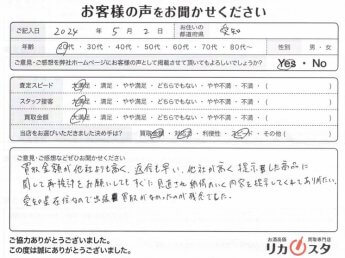 お客様の声をお聞かせください
ご記入日 2024 年 5 月 2 日 お住いの都道府県 愛知
年齢 20代・30代・40代・50代・60代・70代・80代・90代~ 性別 男・女
ご意見・ご感想を弊社ホームページにお客様の声として掲載させて頂いてもよろしいでしょうか? Yes・No
査定スピード 大満足・満足・やや満足・どちらでもない・やや不満・不満・( )
スタッフ接客 大満足・満足・やや満足・どちらでもない・やや不満・不満・( )
買取金額 大満足・満足・やや満足・どちらでもない・やや不満・不満・( )
当店をお選びいただきました決め手は? 買取金額・対応力・利便性・・その他( )
ご意見・ご感想などぜひお聞かせください
買取金額が他社よりも高く、返信も早い、他社が高く提示した商品に
関して再検討をお願いしてもすぐに見直され納得のいく内容を提示してくれてありがたい。
愛知県在住なので出張買取がなかったのが残念でした。
ご協力ありがとうございました。
この度は誠にありがとうございました。
お酒品価 買取専門店
リカスタ